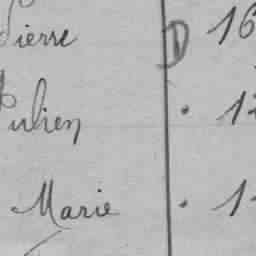 Pierre D 16
Julien . 12
Marie . 1